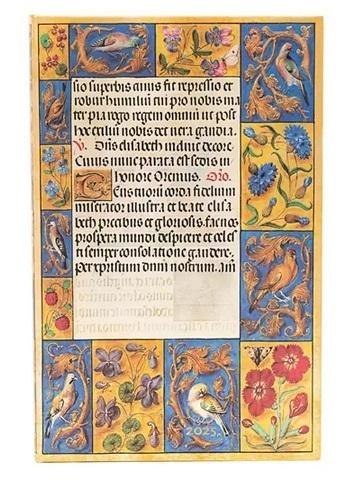 sio superbis cuius fit repressio et
robur humiliū pro nobis ma
ter pia regem omniū ut post
hoc exiliū nobis det vera gaudia.
V. Dn̄s elisabeth induit decore.
Cuius nunc parata est sedis in
honore Oremus. Oro.
Tuorū corda fidelium
miserator illustra et beate elisa
beth precibus et gloriosis. fac nos
prospera mundi despicere et celes
ti semper consolatione gaudere.
Per xpristum dn̄m nostrum. am̄
2025